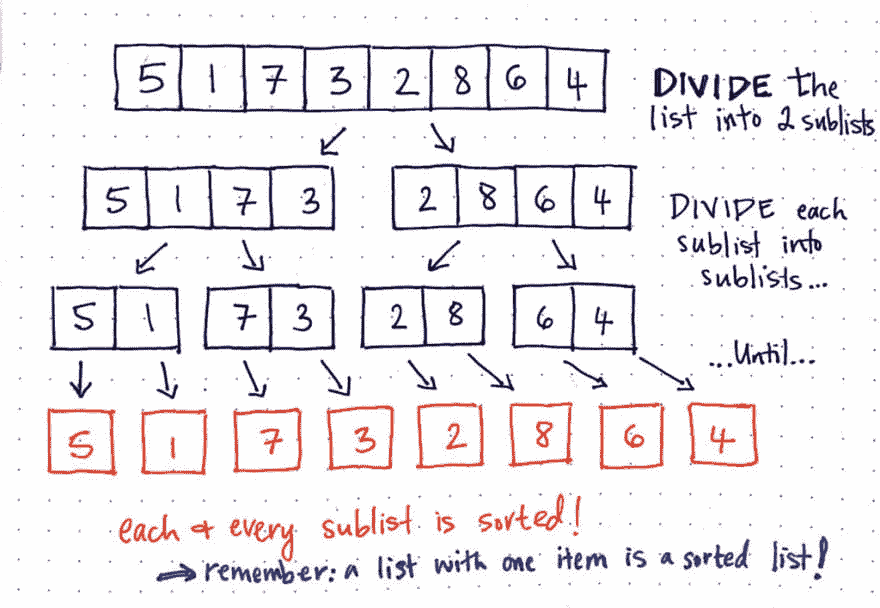 5 1 7 3 2 8 6 4
DIVIDE the
list into 2 sublists
5 1 7 3
2 8 6 4
DIVIDE each
sublist into
sublists...
5 1
7 3
2 8
6 4
...Until...
5
1
7
3
2
8
6
4
each & every sublist is sorted!
→ remember: a list with one item is a sorted list!